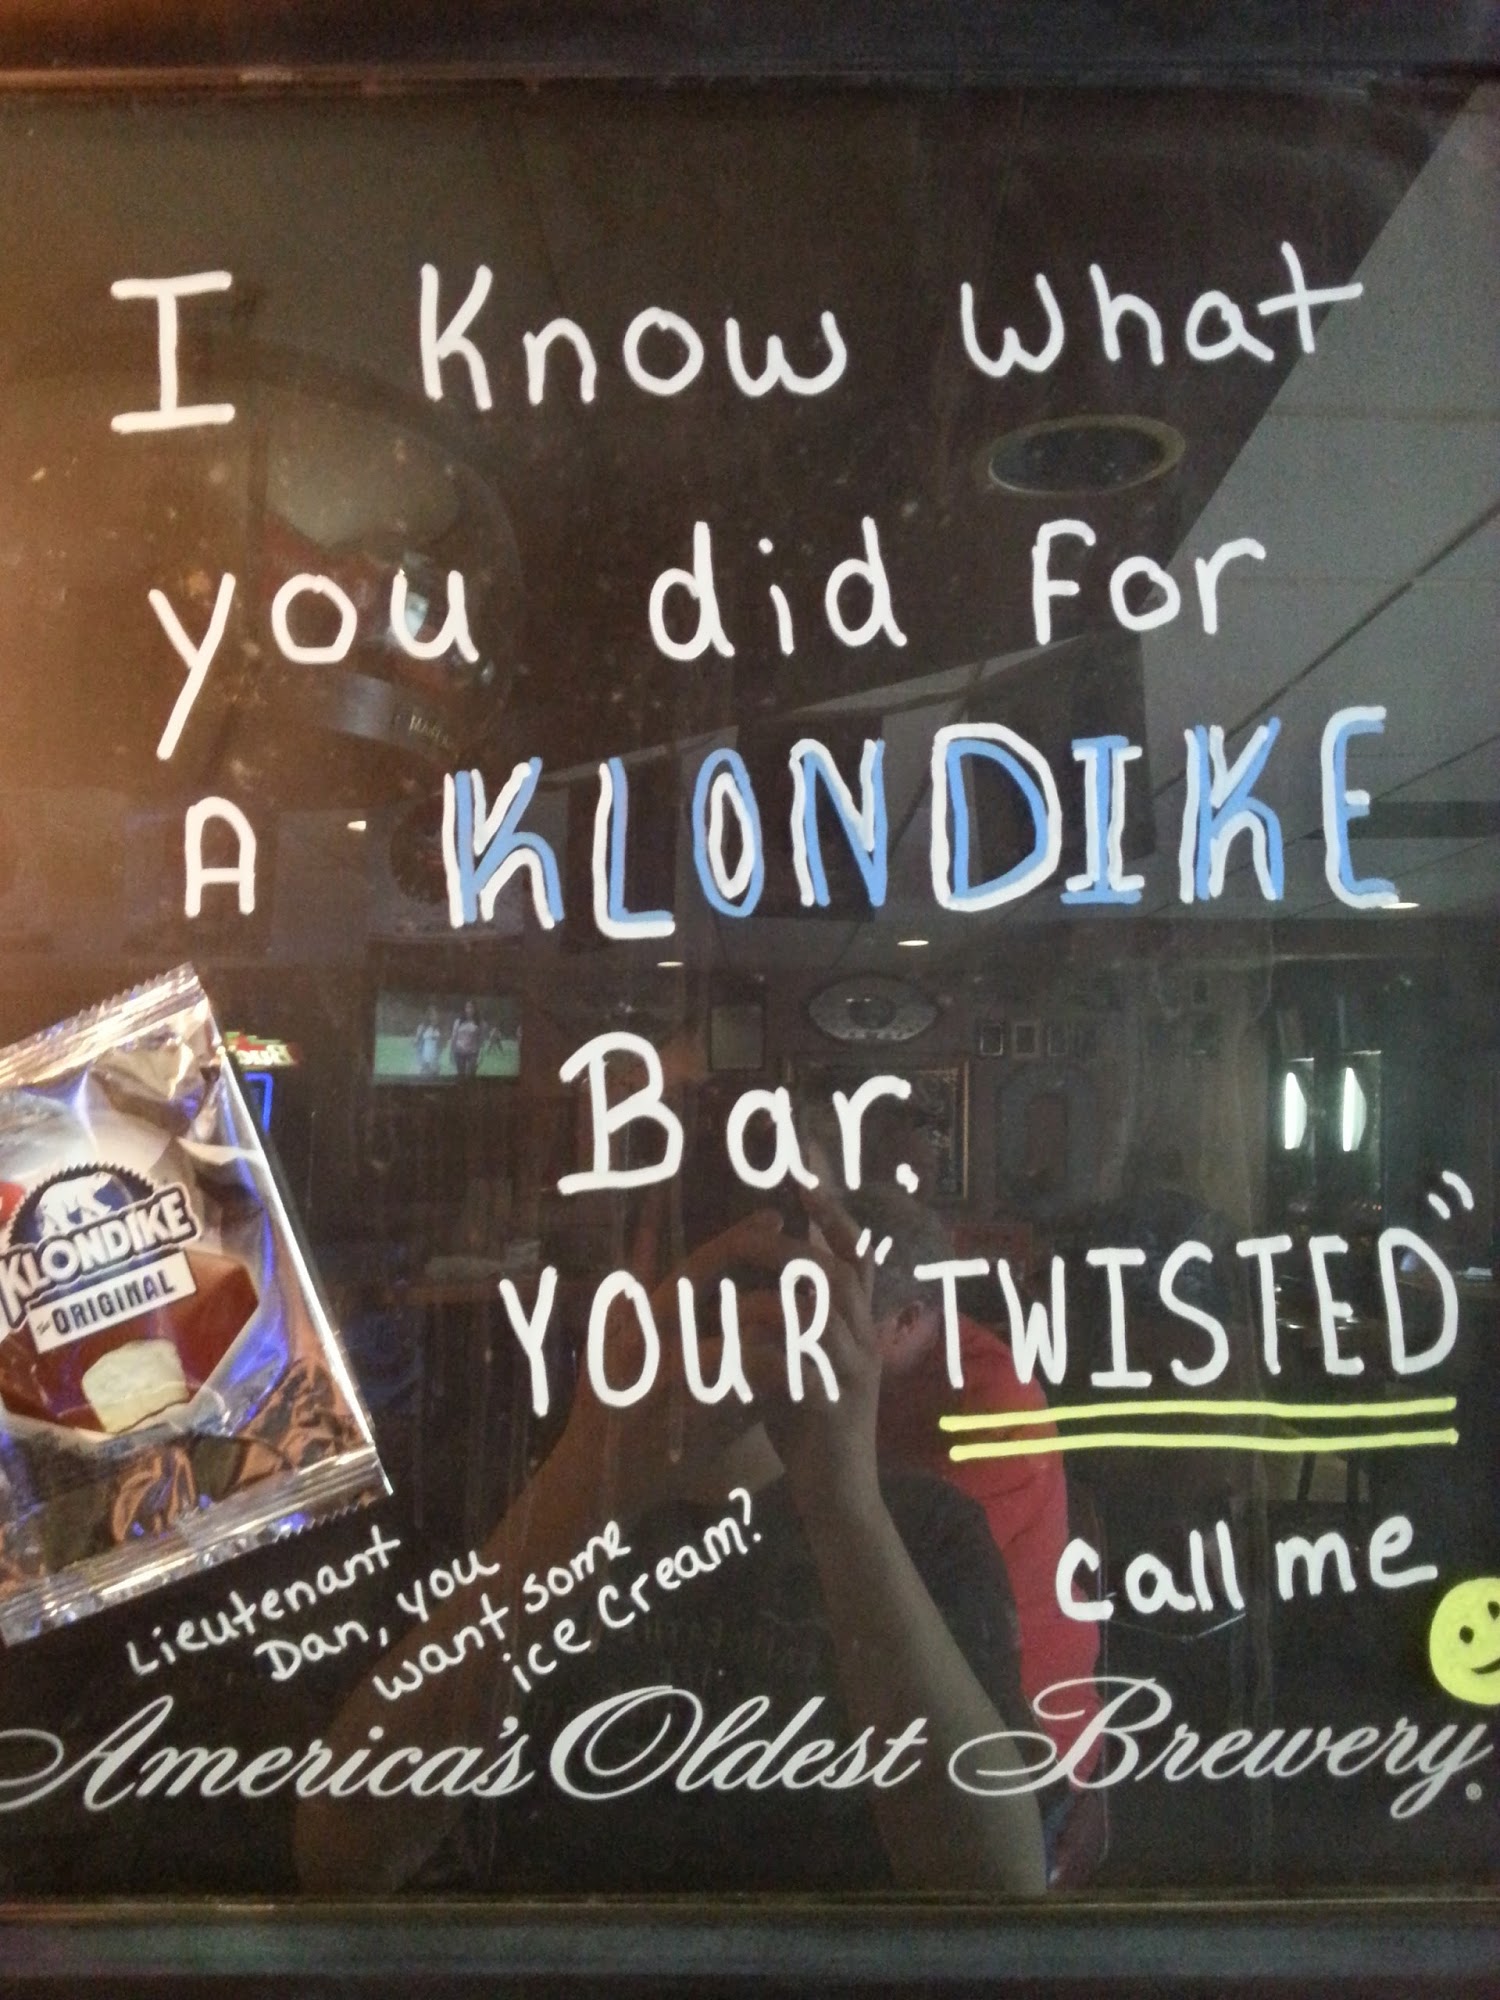 I Know what
you did for
A KLONDIKE
Bar.
YOUR "TWISTED"
call me
KLONDIKE
The ORIGINAL
Lieutenant
Dan, you
want some
ice cream?
America's Oldest Brewery®